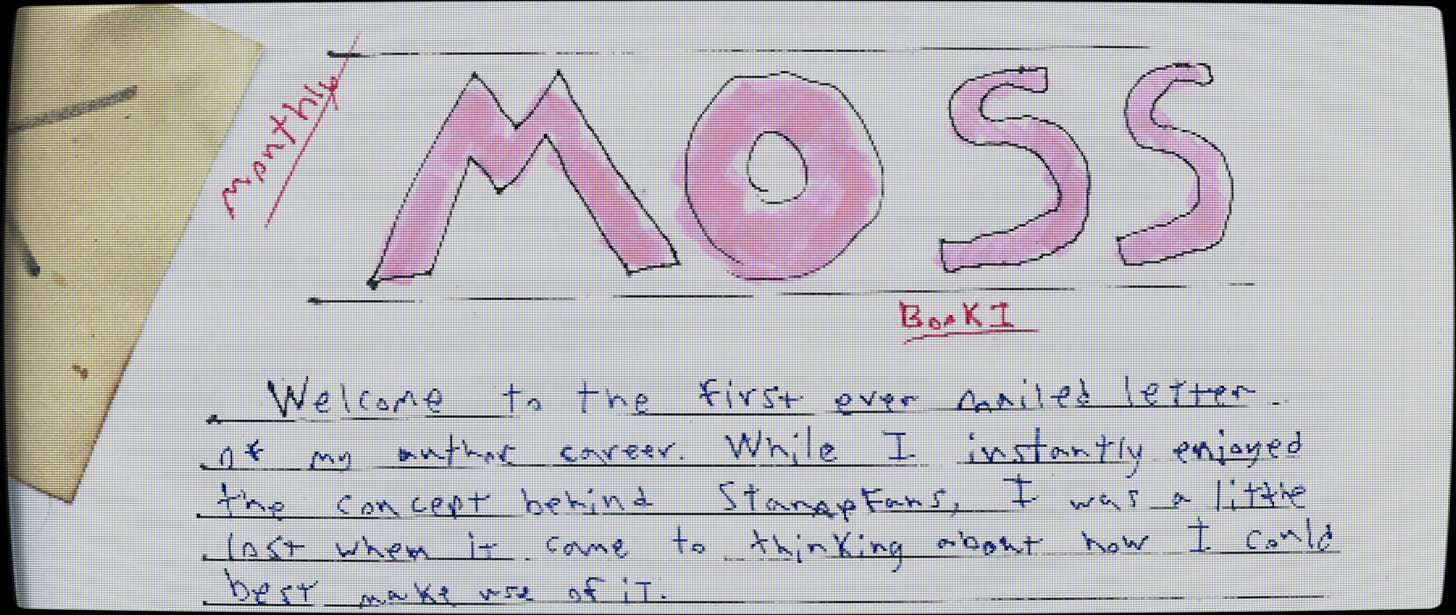 monthly
MOSS
Book 1
Welcome to the first ever mailed letter
of my author career. While I instantly enjoyed
the concept behind StampFans, I was a little
lost when it came to thinking about how I could
best make use of it.